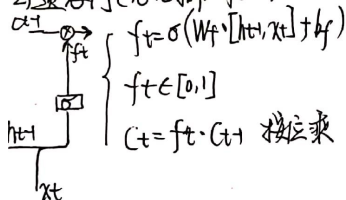 Ct-1
ft
σ
ht-1
xt
ft=σ(Wf·[ht-1,xt]+bf)
ft∈[0,1]
Ct=ft·Ct-1 按位乘